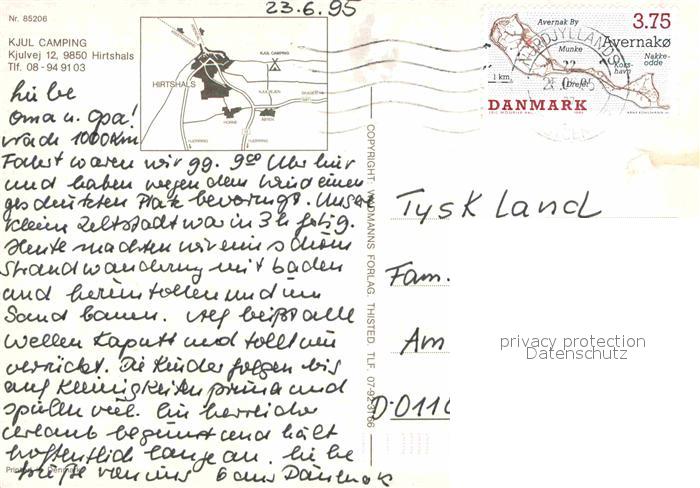 Nr. 85206
23.6.95
KJUL CAMPING
Kjulvej 12, 9850 Hirtshals
Tlf. 08 - 94 91 03
KJUL CAMPING
HIRTSHALS
HORNE
HJØRRING
HJØRRING
3.75
Avernak By
Munke
Avernakø
Nakke-
odde
Kors-
havn
Drejet
1 km
DANMARK
liebe
Oma u. Opa!
nach 1000 km
Fahrt waren wir gg. 9⁰⁰ Uhr hier
und haben wegen dem Wind einen
geschützten Platz bevorzugt. Unsere
kleine Zeltstadt war in 3 h fertig.
Heute machten wir eine schöne
Strandwanderung mit baden
und herumtollen und im
Sand bauen. beißt alle
Wellen kaputt und tollt wie
verrückt. Die Kinder folgen bis
auf Kleinigkeiten prima und
spielen viel. Ein herrlicher
Urlaub beginnt und hält
hoffentlich lange an. liebe
Grüße von uns 6 aus Dänemark
Tyskland
Fam.
Am
D-0110
privacy protection
Datenschutz
COPYRIGHT: WIDMANNS FORLAG, THISTED. TLF. 07-92 31 66
Printed in Denmark